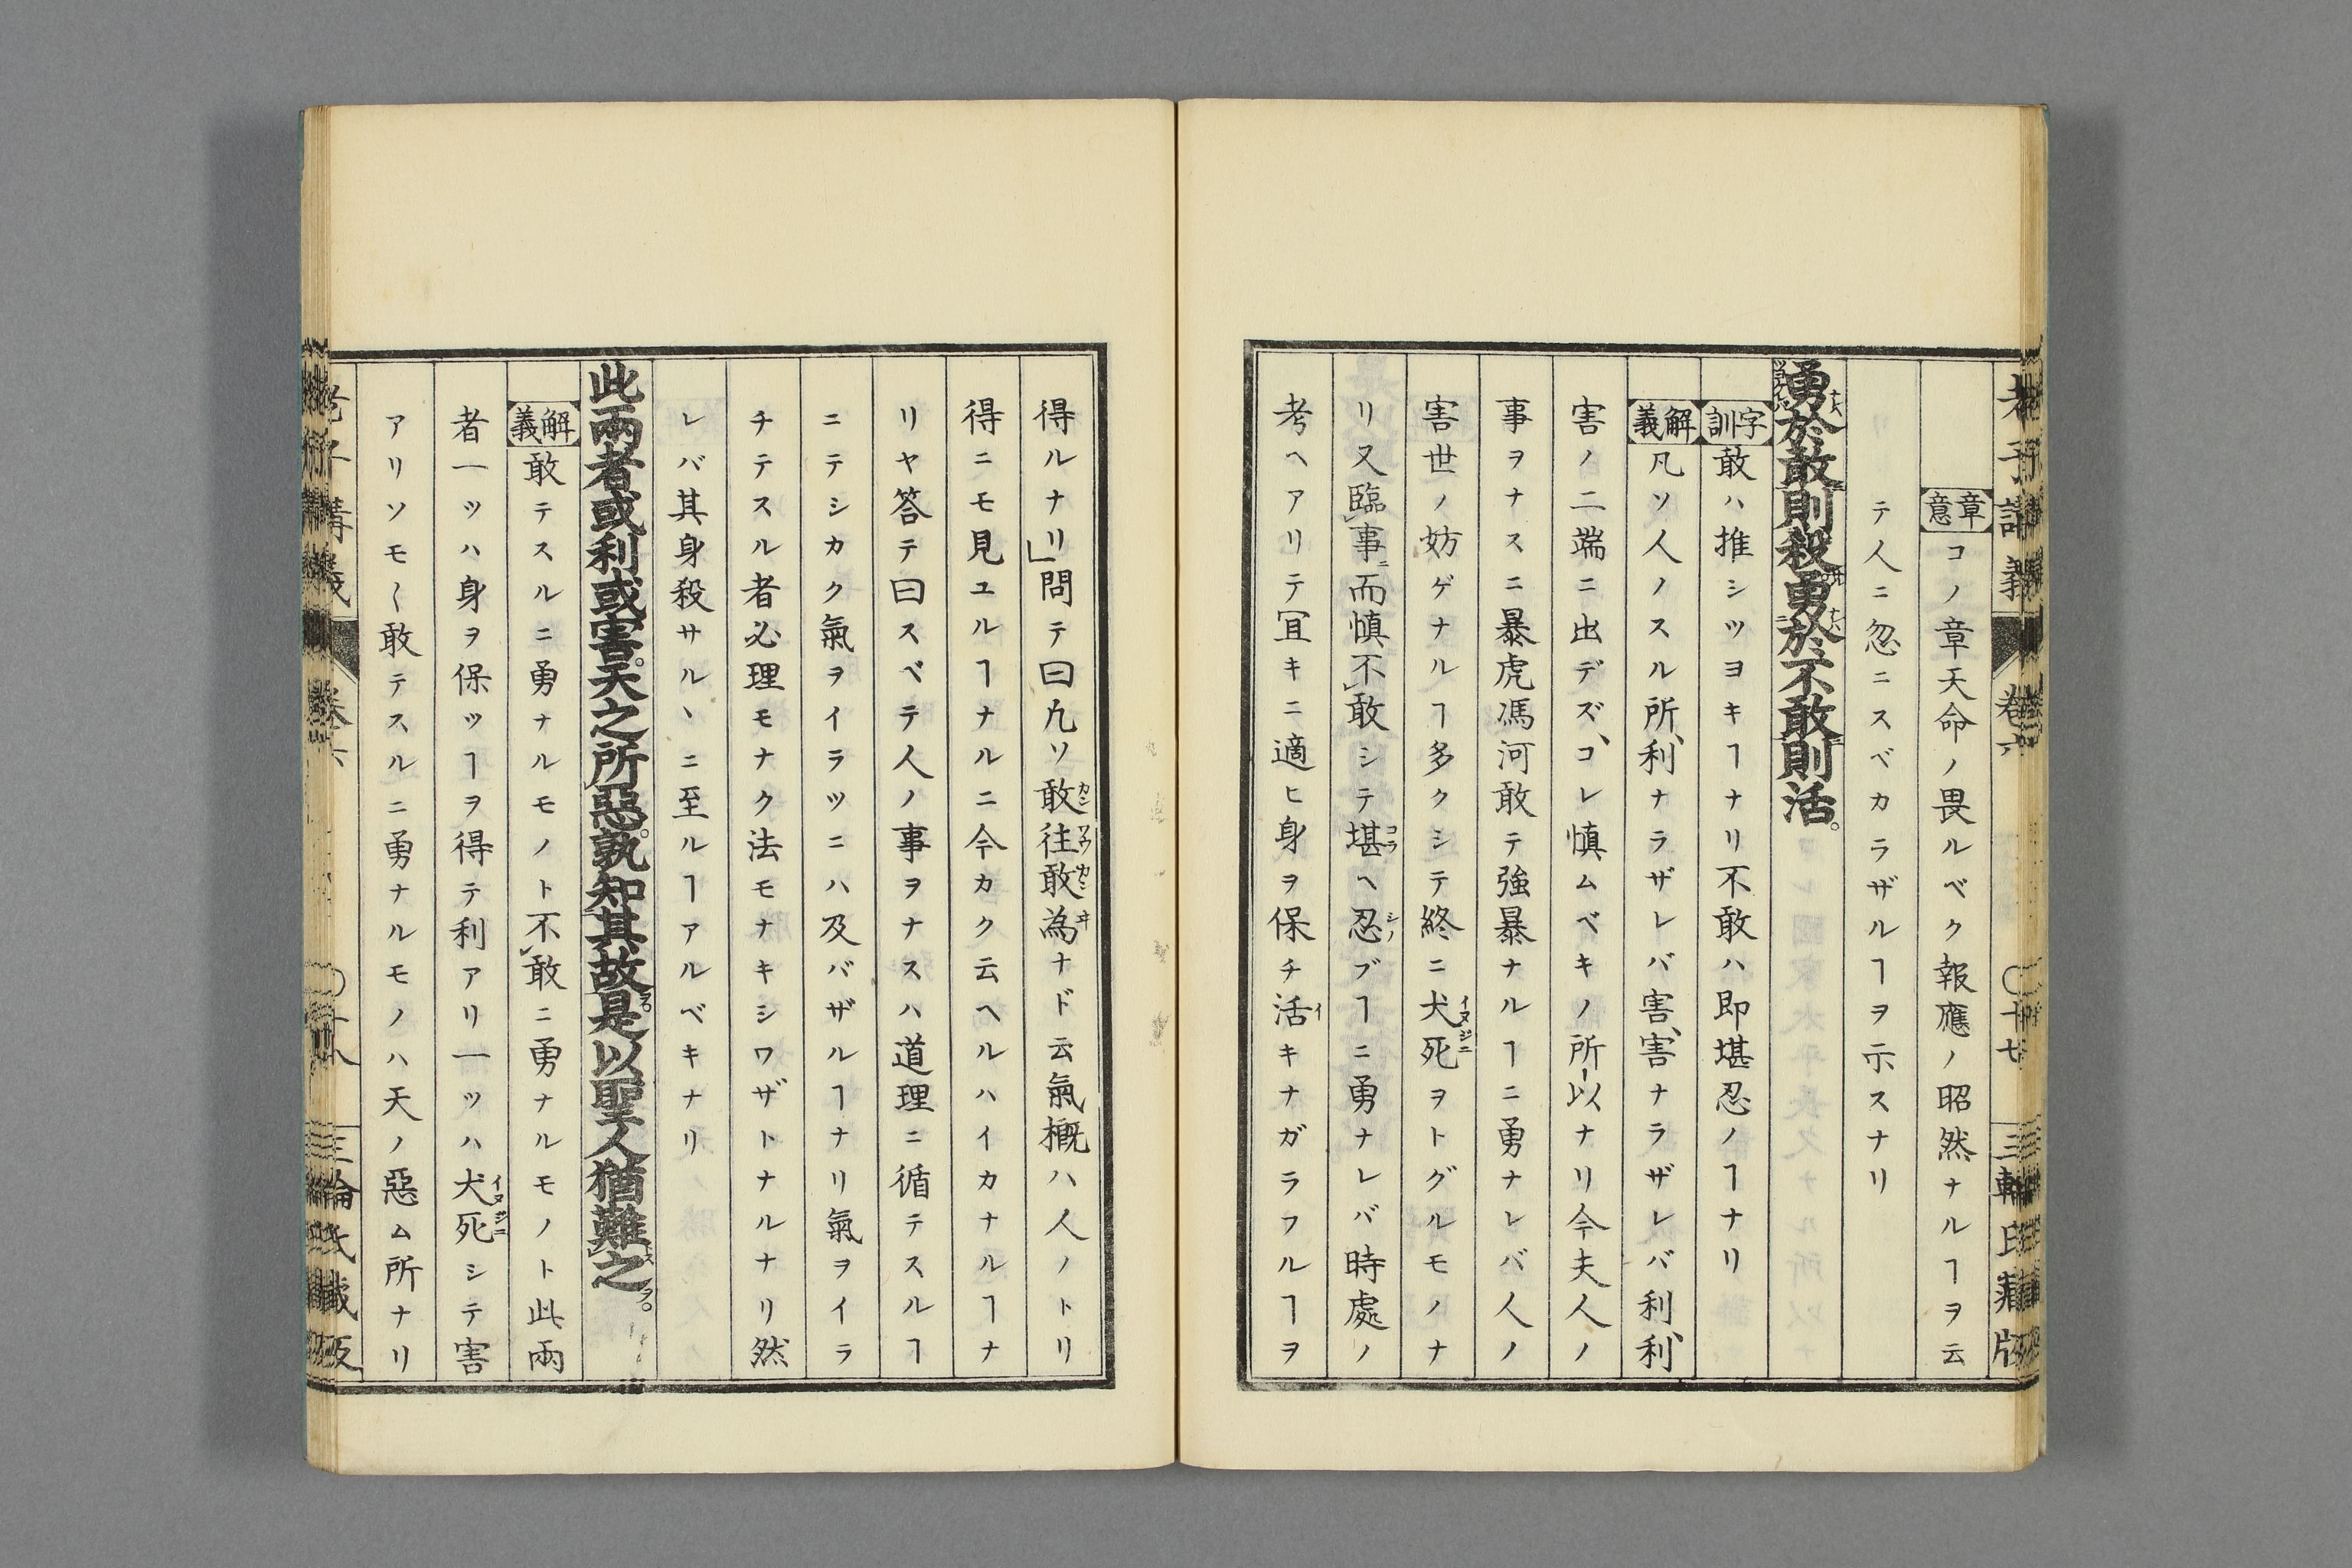 老子講義 卷六 〇十七 三輪氏藏版
章意 コノ章天命ノ畏ルベク報應ノ昭然ナルヿヲ云
テ人ニ忽ニスベカラザルヿヲ示スナリ
勇於敢則殺勇於不敢則活。
字訓 敢ハ推シツヨキヿナリ不敢ハ即堪忍ノヿナリ
解義 凡ソ人ノスル所、利ナラザレバ害、害ナラザレバ利、利
害ノ二端ニ出デズ、コレ慎ムベキノ所以ナリ今夫人ノ
事ヲナスニ暴虎馮河敢テ強暴ナルヿニ勇ナレバ人ノ
害世ノ妨ゲナルヿ多クシテ終ニ犬死ヲトグルモノナ
リ又臨事而慎不敢シテ堪ヘ忍ブヿニ勇ナレバ時處ノ
考ヘアリテ冝キニ適ヒ身ヲ保チ活キナガラフルヿヲ
得ルナリ」問テ曰凢ソ敢往敢為ナド云氣概ハ人ノトリ
得ニモ見ユルヿナルニ今カク云ヘルハイカナルヿナ
リヤ答テ曰スベテ人ノ事ヲナスハ道理ニ循テスルヿ
ニテシカク氣ヲイラツニハ及バザルヿナリ氣ヲイラ
チテスル者必理モナク法モナキシワザトナルナリ然
レバ其身殺サルヽニ至ルヿアルベキナリ
此兩者或利或害。天之所惡。孰知其故。是以聖人猶難之。
解義 敢テスルニ勇ナルモノト不敢ニ勇ナルモノト此兩
者一ツハ身ヲ保ツヿヲ得テ利アリ一ツハ犬死シテ害
アリソモ〱敢テスルニ勇ナルモノハ天ノ惡ム所ナリ
老子講義 卷六 〇十八 三輪氏藏版